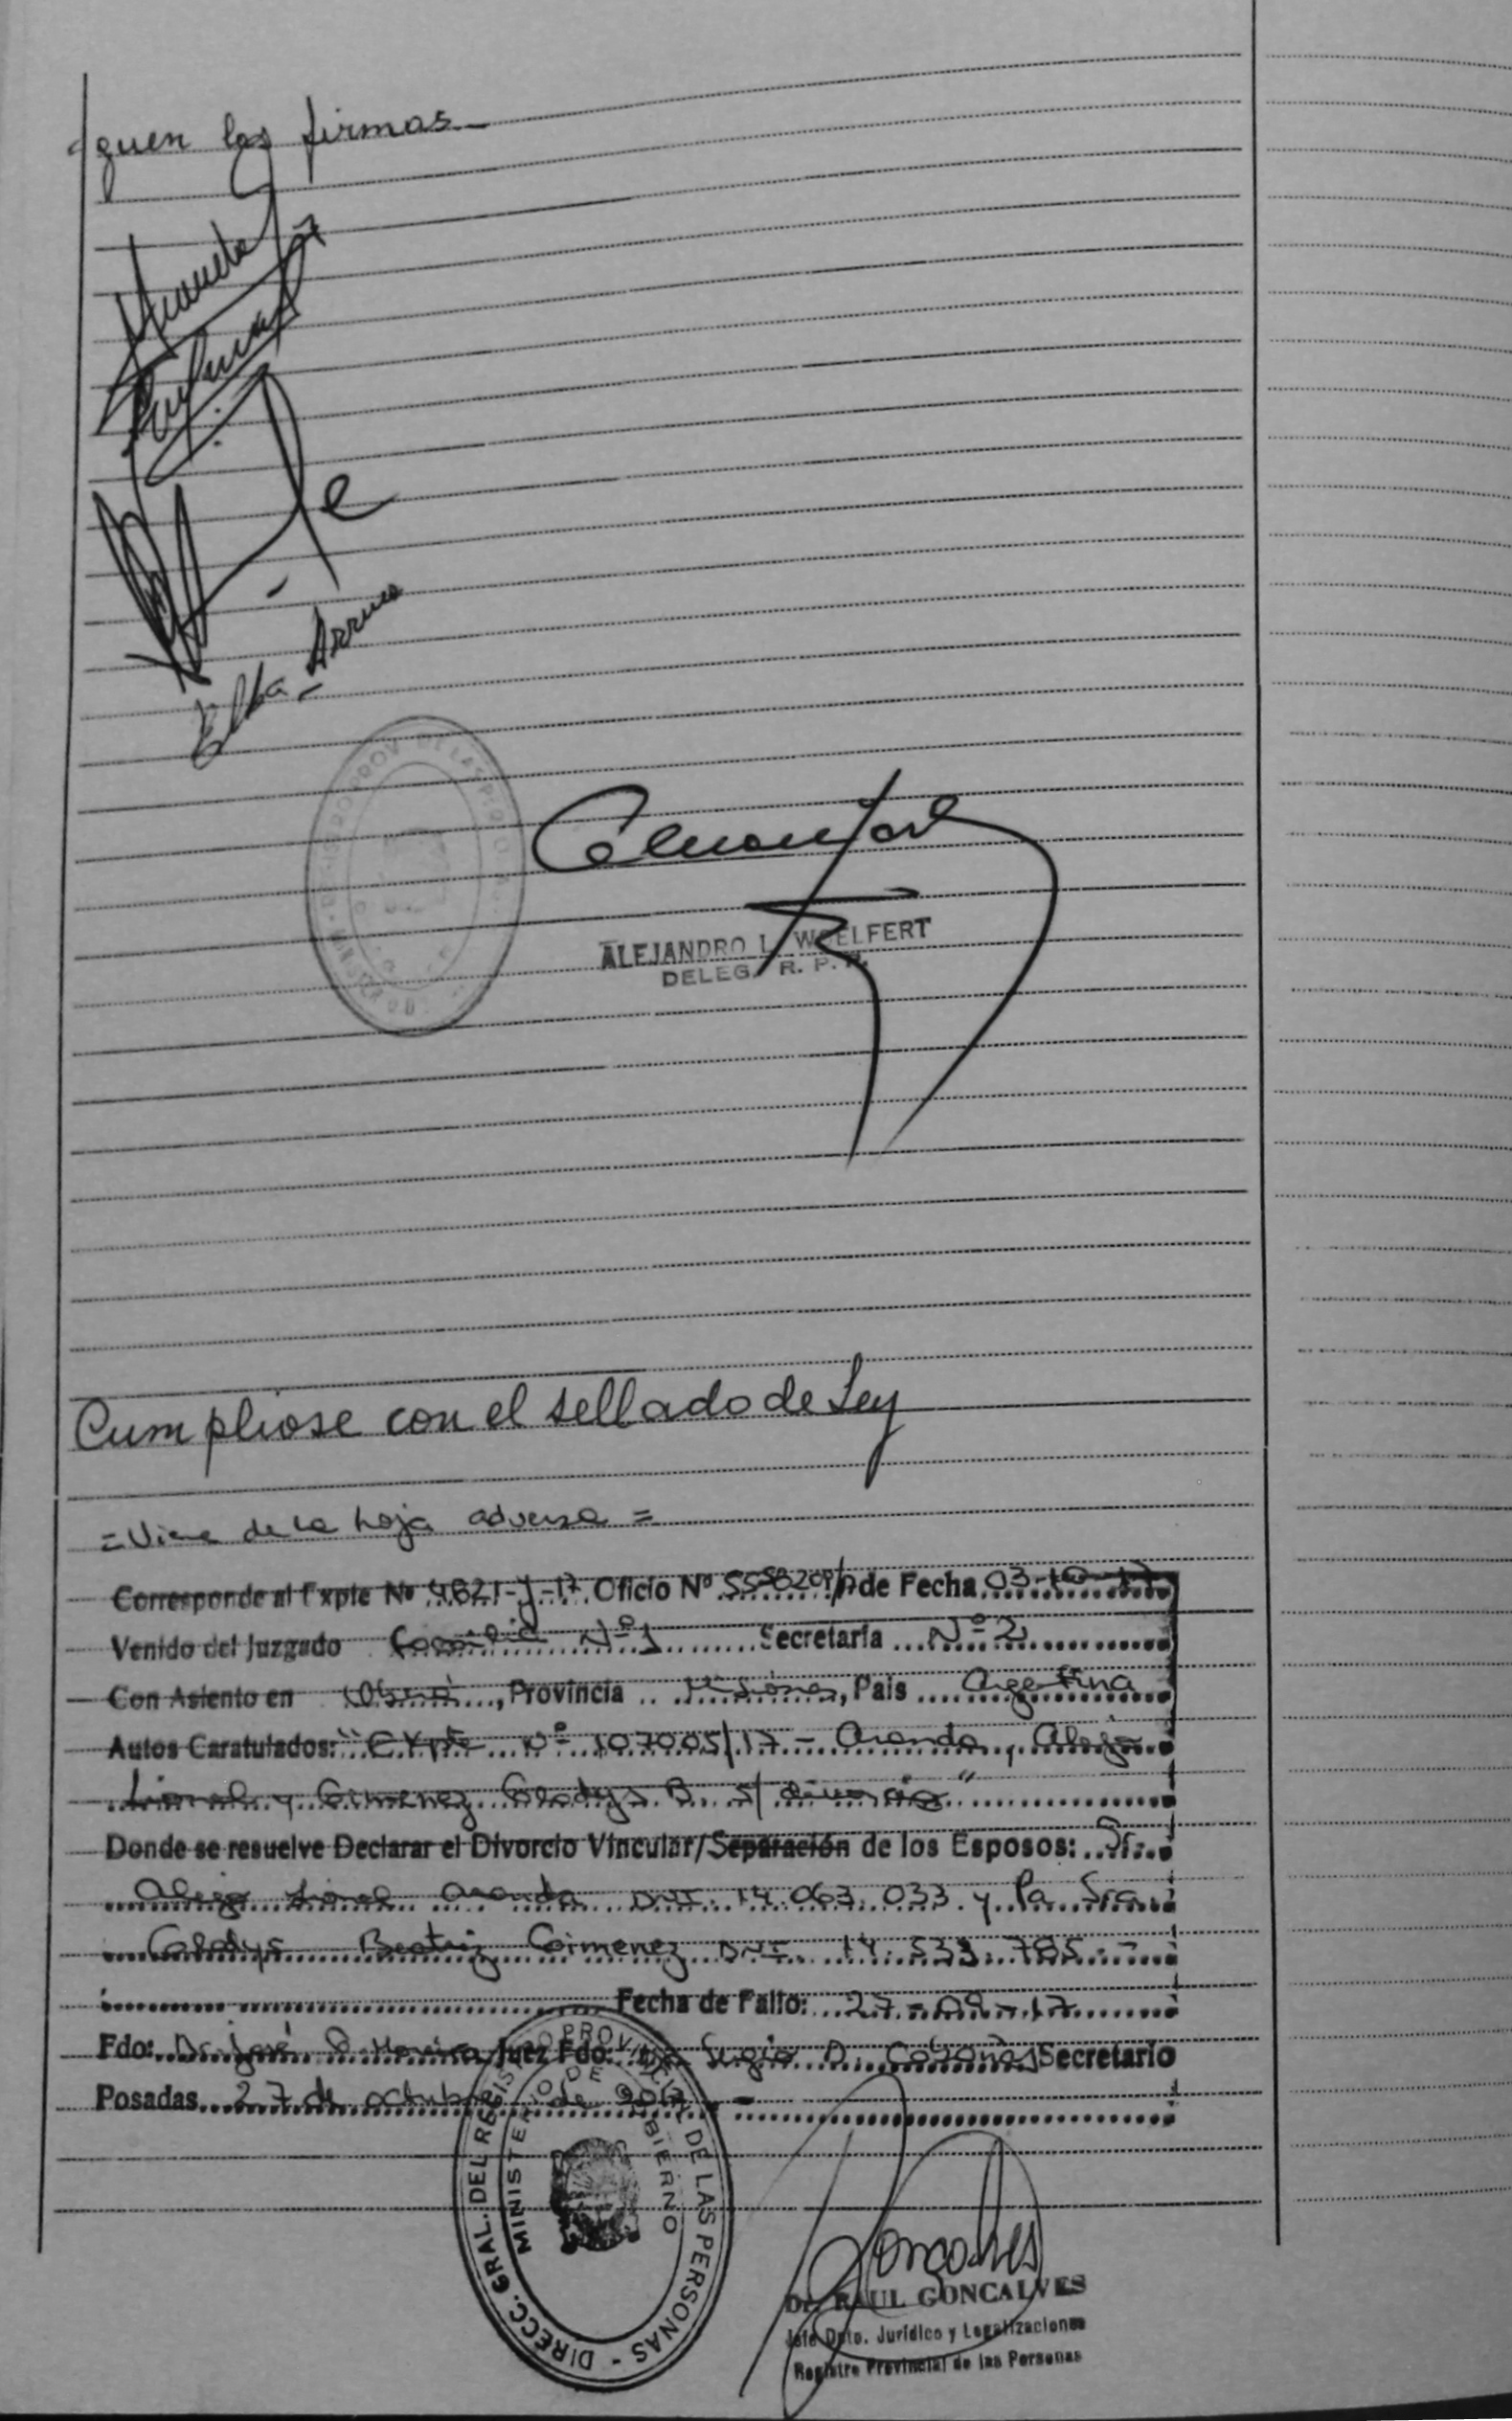 guen las firmas
Elba Arrua
ALEJANDRO L. WOELFERT
DELEG. R. P. P.
Cumpliose con el sellado de Ley
= Viene de la hoja adversa =
Corresponde al Expte Nº 4821-J-17 Oficio Nº de Fecha 03-10-17
Venido del Juzgado Familia Nº 1 Secretaría Nº 2
Con Asiento en Oberá, Provincia Misiones, Pais Argentina
Autos Caratulados: "Expte Nº 107005/17 - Aranda, Alejo
Lionel y Gimenez Gladys B. s/ divorcio"
Donde se resuelve Declarar el Divorcio Vincular/Separación de los Esposos: Sr.
Alejo Lionel Aranda DNI. 14.063.033 y la Sra.
Gladys Beatriz Gimenez DNI. 14.533.785.-
Fecha de Fallo: 27-09-17
Fdo: Dr. José Juez Fdo: Sergio D. Secretario
Posadas 27 de octubre de 2017.-
DIRECC. GRAL. DEL REGISTRO PROVINCIAL DE LAS PERSONAS -
MINISTERIO DE GOBIERNO
Dr. RAUL GONCALVES
Jefe Dpto. Jurídico y Legalizaciones
Registro Provincial de las Personas